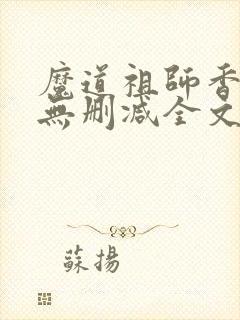 魔道祖師香
無刪減全文
蘇揚